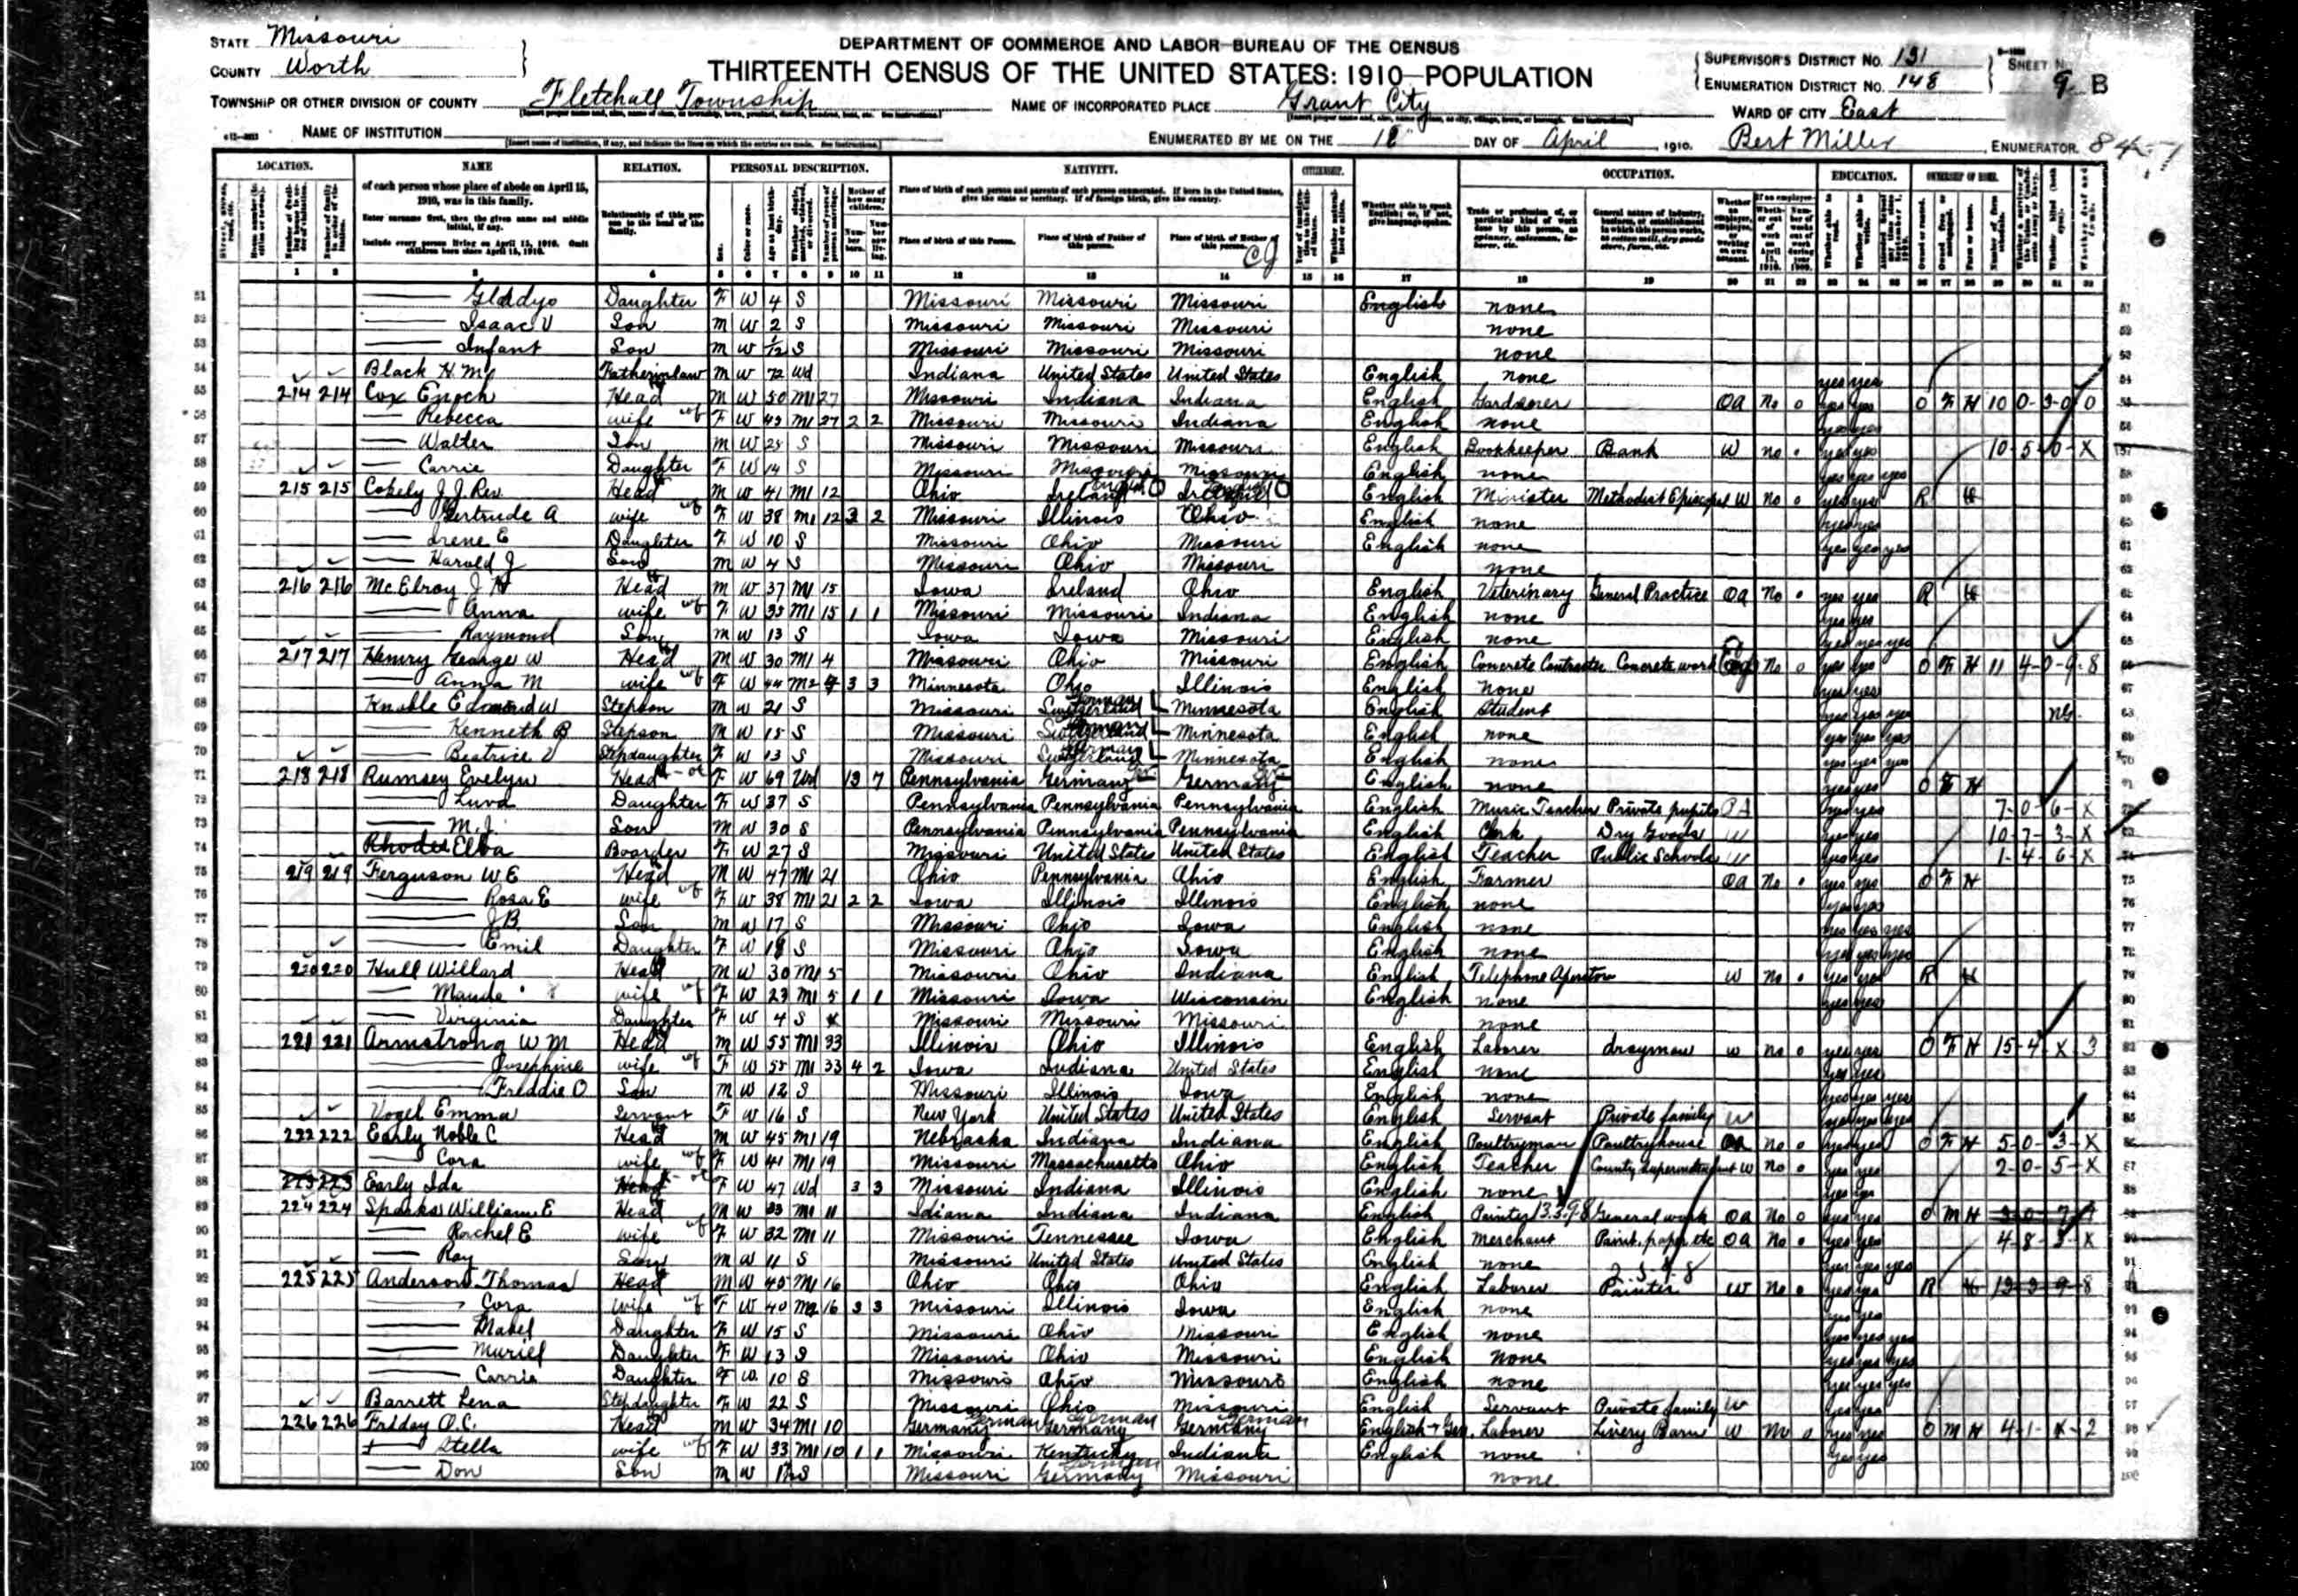 STATE Missouri
COUNTY Worth
DEPARTMENT OF COMMERCE AND LABOR—BUREAU OF THE CENSUS
THIRTEENTH CENSUS OF THE UNITED STATES: 1910—POPULATION
SUPERVISOR'S DISTRICT No. 131
ENUMERATION DISTRICT No. 148
SHEET No. 9 B
TOWNSHIP OR OTHER DIVISION OF COUNTY Fletchall Township
NAME OF INCORPORATED PLACE Grant City
WARD OF CITY East
NAME OF INSTITUTION
ENUMERATED BY ME ON THE DAY OF April, 1910. Bert Miller, ENUMERATOR.
LOCATION. NAME RELATION. PERSONAL DESCRIPTION. NATIVITY. CITIZENSHIP. OCCUPATION. EDUCATION. OWNERSHIP OF HOME.
of each person whose place of abode on April 15, 1910, was in this family.
Enter surname first, then the given name and middle initial, if any.
Include every person living on April 15, 1910. Omit children born since April 15, 1910.
Relationship of this person to the head of the family.
Place of birth of each person and parents of each person enumerated. If born in the United States, give the state or territory. If of foreign birth, give the country.
Place of birth of this Person. Place of birth of Father of this person. Place of birth of Mother of this person.
51 Gladys Daughter F W 4 S Missouri Missouri Missouri English none
52 Isaac V Son M W 2 S Missouri Missouri Missouri none
53 Infant Son M W 1/12 S Missouri Missouri Missouri none
54 Black H. M. Fatherinlaw M W 72 Wd Indiana United States United States English none yes yes
55 214 214 Cox Enoch Head M W 50 M1 27 Missouri Indiana Indiana English Gardener OA No 0 yes yes O F H 10 0-3-0 0
56 Rebecca wife F W 43 M1 27 2 2 Missouri Missouri Indiana English none yes yes
57 Walter Son M W 25 S Missouri Missouri Missouri English Bookkeeper Bank W no yes yes 10-5-0-X
58 Carrie Daughter F W 14 S Missouri Missouri Missouri English none yes yes yes
59 215 215 Cokely J. J. Rev. Head M W 41 M1 12 Ohio Ireland Ireland English Minister Methodist Episcopal W No 0 yes yes R H
60 Gertrude A wife F W 38 M1 12 3 2 Missouri Illinois Ohio English none yes yes
61 Irene E Daughter F W 10 S Missouri Ohio Missouri English none yes yes yes
62 Harold J Son M W 4 S Missouri Ohio Missouri none
63 216 216 McElroy J H Head M W 37 M1 15 Iowa Ireland Ohio English Veterinary General Practice OA No yes yes R H
64 Anna wife F W 35 M1 15 1 1 Missouri Missouri Indiana English none yes yes
65 Raymond Son M W 13 S Iowa Iowa Missouri English none yes yes yes
66 217 217 Henry George W Head M W 30 M1 4 Missouri Ohio Missouri English Concrete Contractor Concrete work No 0 yes yes O F H 11 4-0-9-8
67 Anna M wife F W 44 M2 4 3 3 Minnesota Ohio Illinois English none yes yes
68 Knable Edmond W Stepson M W 21 S Missouri Switzerland Minnesota English Student yes yes yes
69 Kenneth B Stepson M W 15 S Missouri Switzerland Minnesota English none yes yes yes
70 Beatrice V Stepdaughter F W 13 S Missouri Switzerland Minnesota English none yes yes yes
71 218 218 Rumsey Evelyn Head F W 69 Wd 13 7 Pennsylvania Germany Germany English none yes yes O F H
72 Luva Daughter F W 37 S Pennsylvania Pennsylvania Pennsylvania English Music Teacher Private pupils OA yes yes 7-0-6-X
73 M. J. Son M W 30 S Pennsylvania Pennsylvania Pennsylvania English Clerk Dry Goods W yes yes 10-7-3-X
74 Rhodes Elva Boarder F W 27 S Missouri United States United States English Teacher Public Schools W yes yes 1-4-6-X
75 219 219 Ferguson W E Head M W 47 M1 21 Ohio Pennsylvania Ohio English Farmer OA No yes yes O F H
76 Rosa E wife F W 38 M1 21 2 2 Iowa Illinois Illinois English none yes yes
77 J B. Son M W 17 S Missouri Ohio Iowa English none yes yes yes
78 Emil Daughter F W 18 S Missouri Ohio Iowa English none yes yes yes
79 220 220 Hull Willard Head M W 30 M1 5 Missouri Ohio Indiana English Telephone Operator W no yes yes R H
80 Maude wife F W 23 M1 5 1 1 Missouri Iowa Wisconsin English none yes yes
81 Virginia Daughter F W 4 S Missouri Missouri Missouri none
82 221 221 Armstrong W M Head M W 55 M1 33 Illinois Ohio Illinois English Laborer drayman W no 0 yes yes O F H 15-4-X-3
83 Josephine wife F W 55 M1 33 4 2 Iowa Indiana United States English none yes yes
84 Freddie O Son M W 12 S Missouri Illinois Iowa English none yes yes yes
85 Vogel Emma Servant F W 16 S New York United States United States English Servant Private family W yes yes yes
86 222 222 Early Noble C Head M W 45 M1 19 Nebraska Indiana Indiana English Poultryman Poultryhouse OA no 0 yes yes O F H 5-0-3-X
87 Cora wife F W 41 M1 19 Missouri Massachusetts Ohio English Teacher County Superintendent W No 0 yes yes 2-0-5-X
88 223 223 Early Ida Head F W 47 Wd 3 3 Missouri Indiana Illinois English none yes yes
89 224 224 Sparks William E Head M W 33 M1 11 Idiana Indiana Indiana English Painter General work OA No 0 yes yes O M H
90 Rachel E wife F W 32 M1 11 Missouri Tennessee Iowa English Merchant Paint, paper etc OA No 0 yes yes 4-8-3-X
91 Roy Son M W 11 S Missouri United States United States English none yes yes yes
92 225 225 Anderson Thomas Head M W 45 M1 16 Ohio Ohio Ohio English Laborer Painter W No yes yes R H
93 Cora wife F W 40 M2 16 3 3 Missouri Illinois Iowa English none yes yes
94 Mabel Daughter F W 15 S Missouri Ohio Missouri English none yes yes yes
95 Muriel Daughter F W 13 S Missouri Ohio Missouri English none yes yes yes
96 Carrie Daughter F W 10 S Missouri Ohio Missouri English none yes yes yes
97 Barrett Lena Stepdaughter F W 22 S Missouri Ohio Missouri English Servant Private family W yes yes
98 226 226 Friday O. C. Head M W 34 M1 10 Germany Germany Germany English + Ger. Laborer Livery Barn W No 0 yes yes O M H 4-1-X-2
99 Stella wife F W 33 M1 10 1 1 Missouri Kentucky Indiana English none yes yes
100 Don Son M W S Missouri Germany Missouri none